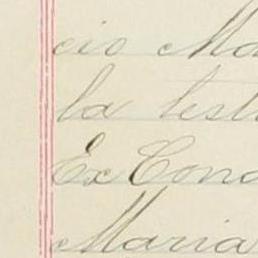 cio Ma
la test
Ex Cond
Maria